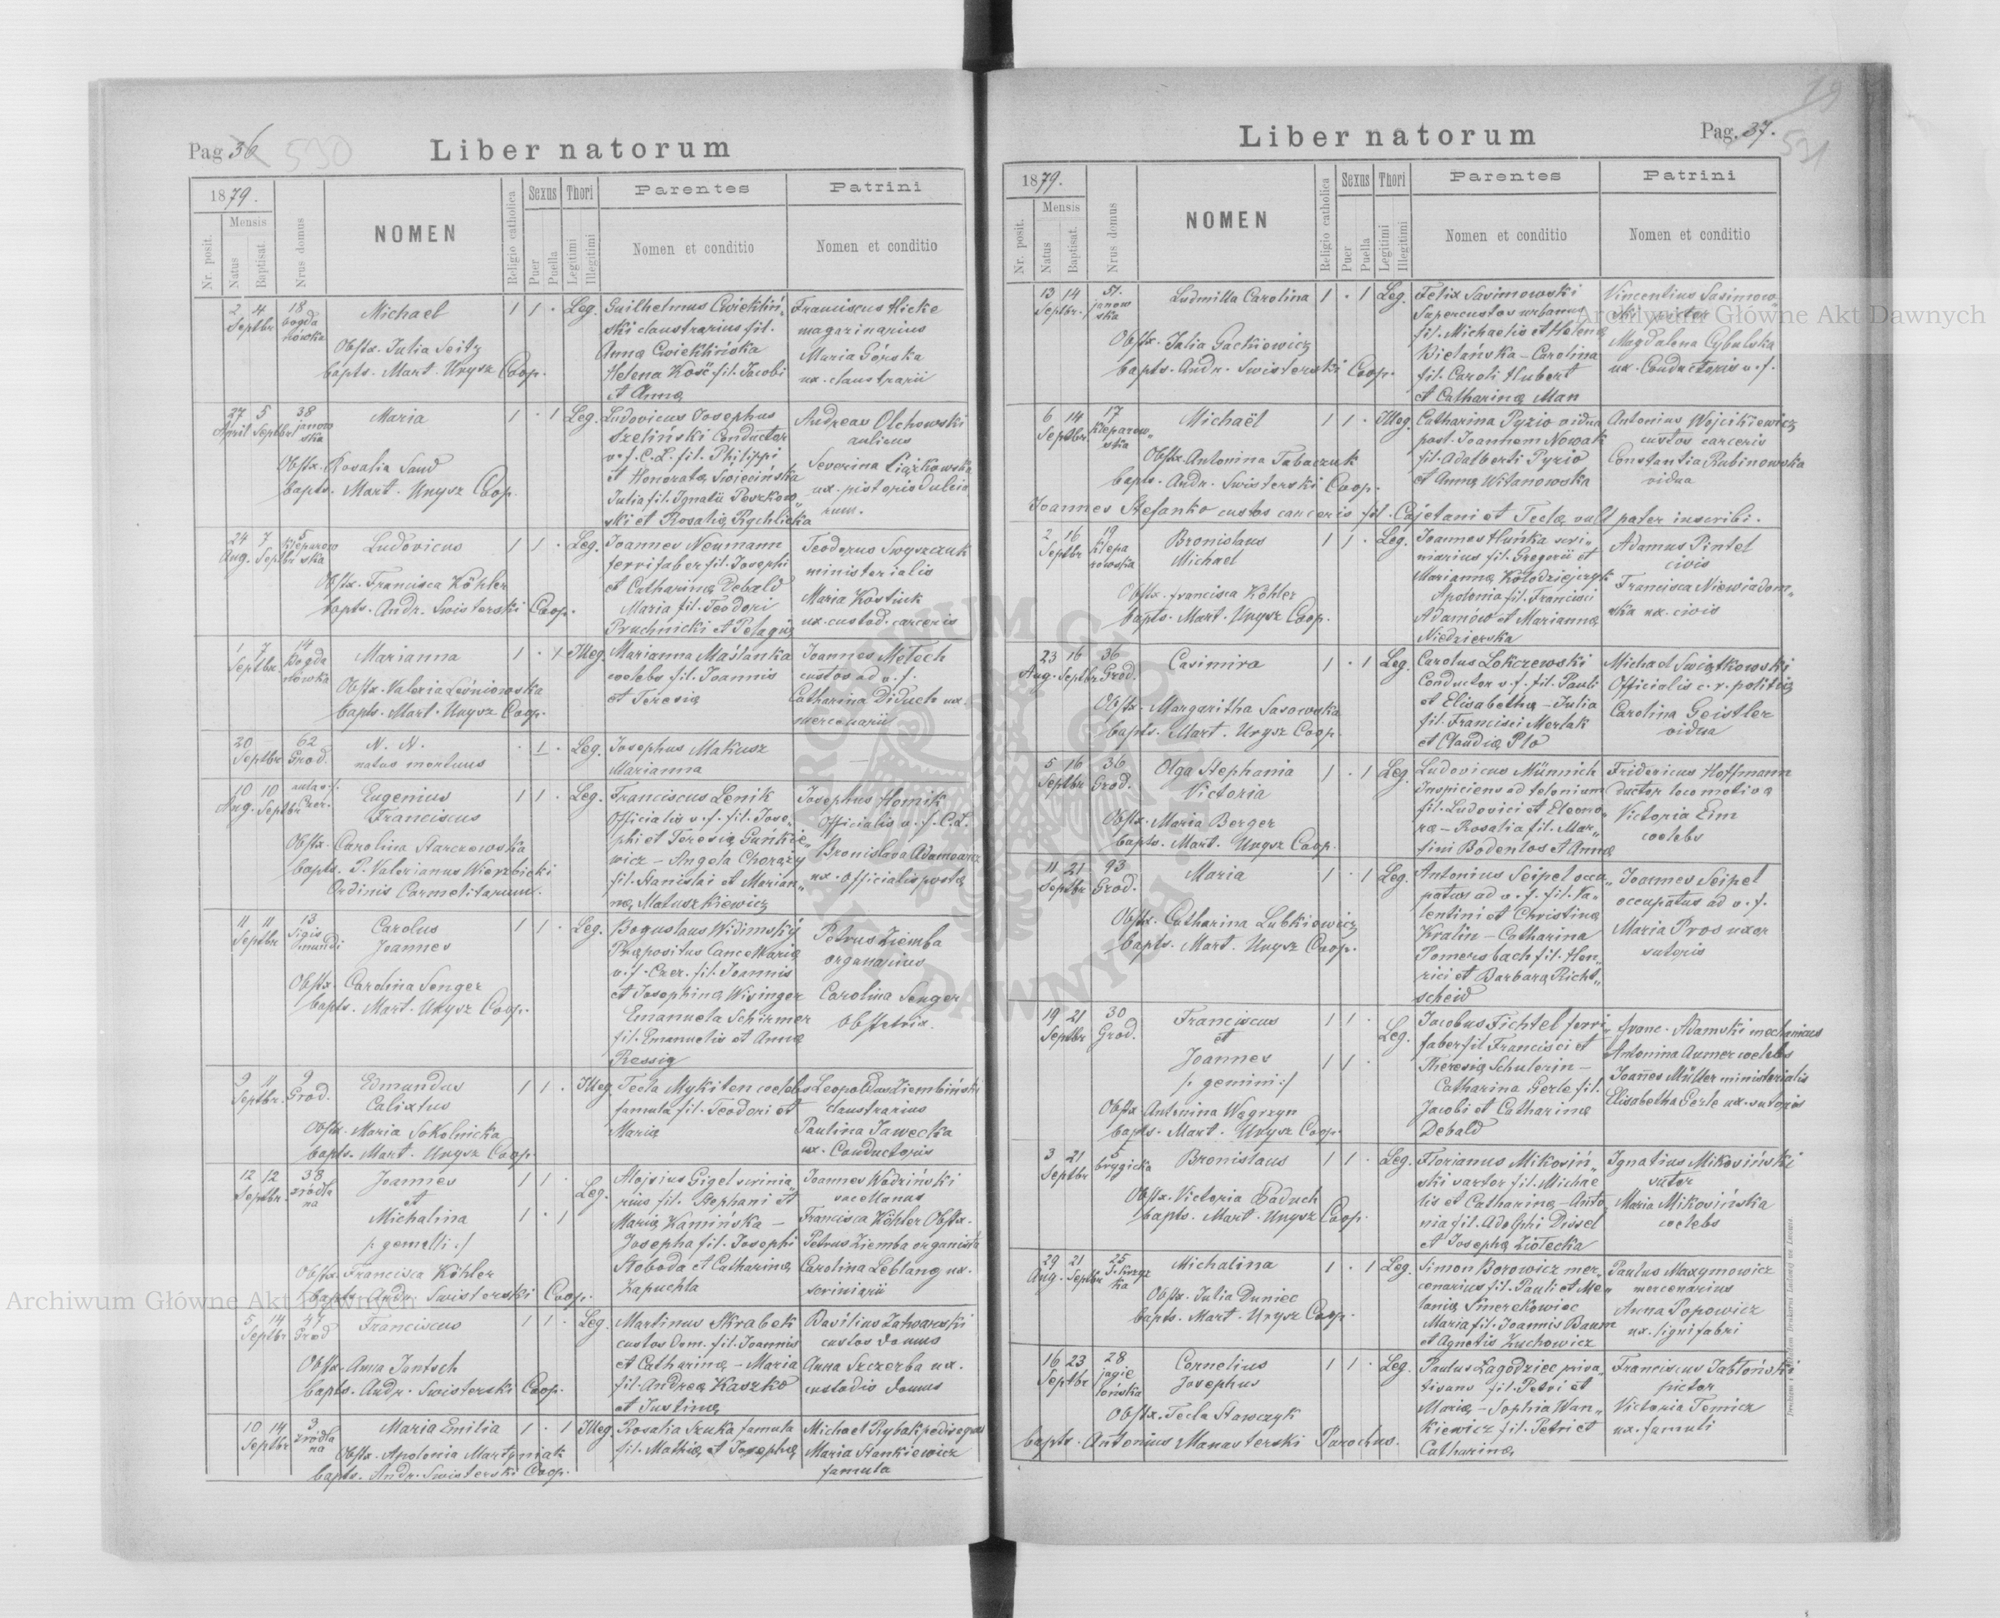 Pag 36 530
Liber natorum
1879.
Mensis
Nr. posit.
Natus
Baptisat.
Nrus domus
NOMEN
Religio catholica
Sexus
Puer
Puella
Thori
Legitimi
Illegitimi
Parentes
Nomen et conditio
Patrini
Nomen et conditio
2 4 18 Michael 1 1 · Leg. Guilhelmus Cwiekliń- Franciscus Hicke
Septbr. bogda nówka ski claustrarius fil. magazinarius
Obstx. Julia Seitz Anna Cwieklińska Maria Górska
bapts. Mart. Unysz Coop. Helena Kość fil. Jacobi ux. claustrarii
et Anna
27 5 38 Maria 1 · 1 Leg. Ludovicus Josephus Andreas Olchowski
April Septbr. janow ska Szeliński Conductor aulicus
Obstx. Rosalia Sand v. f. C. L. fil. Philippi Severina
bapts. Mart. Unysz Coop. et Honorata Święcińska ux. pistoris dulcia
Julia fil. Ignatii Peszkow rum.
ski et Rosalia Rychlicka
24 7 5 Ludovicus 1 1 · Leg. Joannes Neumann Teodorus Swyszczuk
Aug. Septbr kleparow ska ferrifaber fil. Josephi ministerialis
Obstx. Francisca Köhler et Catharina Debald Maria Kostiuk
bapts. Andr. Swisterski Coop. Maria fil. Teodori ux. custod. carceris
Pruchnicki et Pelagia
1 7 14 Marianna 1 · 1 Illeg. Marianna Maślanka Joannes Metech
Septbr. Bogda nówka coelebs fil. Joannis custos ad v. f.
Obstx. Valeria Leśniowska et Teresia Catharina Diduch ux.
bapts. Mart. Unysz Coop. mercenarii
20 62 N. N. · 1 · Leg. Josephus Makusz —
Septbr Grod. natus mortuus Marianna
10 10 Eugenius 1 1 · Leg. Franciscus Lenik Josephus Homik
Aug. Septbr Czer. Franciscus Officialis v. f. fil. Jose- Officialis v. f. C. L.
Obstx. Carolina Starczewska phi et Teresia Guńkie- Bronislava Adamowicz
bapts. P. Valerianus Wierzbicki wicz — Angela Chorąży ux. officialis posta
Ordinis Carmelitarum. fil. Stanislai et Marian-
na Matuszkiewicz
11 11 13 Carolus 1 1 · Leg. Boguslaus Widimský Petrus Ziemba
Septbr Sigis mundi Joannes Præpositus Cancellaria organarius
Obstx. Carolina Senger v. f. Czer. fil. Joannis Carolina Senger
bapts. Mart. Unysz Coop. et Josephina Wisinger obstetrix.
Emanuela Schirmer
fil. Emanuelis et Anna
Ressig
9 11 9 Edmundus 1 1 · Illeg. Tecla Mykiten coelebs Leopoldus Ziembiński
Septbr. Grod. Calixtus famula fil. Teodori et claustrarius
Obstx. Maria Sokolnicka Maria Paulina Jawecka
bapts. Mart. Unysz Coop. ux. Conductoris
12 12 38 Joannes 1 1 · Leg. Alojsius Gigel scrinia- Joannes Wodziński
Septbr. źródla na et rius fil. Stephani et sacellanus
Michalina 1 · 1 Maria Kamińska — Francisca Köhler Obstx.
/: gemelli :/ Josepha fil. Josephi Petrus Ziemba organista
Obstx. Francisca Köhler Sloboda et Catharina Carolina Leblang ux.
bapts. Andr. Swisterski Coop. Zapuchla scriniarii
5 14 47 Franciscus 1 1 · Leg. Martinus Skrabek Basilius Zahowski
Septbr Grod custos dom. fil. Joannis custos domus
Obstx. Anna Jantsch et Catharina — Maria Anna Szczerba ux.
bapts. Andr. Swisterski Coop. fil. Andrea Kaszko custodis domus
et Justina
10 14 3 Maria Emilia 1 · 1 Illeg. Rosalia Szuka famula Michael Rybak pedisequus
Septbr źródla na Obstx. Apolonia Martyniak fil. Mathia et Josepha Maria Stankiewicz
bapts. Andr. Swisterski Coop. famula
Liber natorum
Pag. 37.
19
531
1879.
Mensis
Nr. posit.
Natus
Baptisat.
Nrus domus
NOMEN
Religio catholica
Sexus
Puer
Puella
Thori
Legitimi
Illegitimi
Parentes
Nomen et conditio
Patrini
Nomen et conditio
13 14 51. Ludmilla Carolina 1 · 1 Leg. Felix Sasimowski Vincentius Sasimow-
Septbr. janow ska Supercustos urbanus ski sartor
Obstx. Julia Gackiewicz fil. Michaelis et Helena Magdalena Cybulska
bapts. Andr. Swisterski Coop. Bielańska — Carolina ux. Conductoris v. f.
fil. Caroli Hubert
et Catharina Man
6 14 17 Michaël 1 1 · Illeg. Catharina Pyzio vidua Antonius Wojcikiewicz
Septbr. kleparow- ska post. Joannem Nowak custos carceris
Obstx. Antonina Tabaczuk fil. Adalberti Pyzio Constantia Rubinowska
bapts. Andr. Swisterski Coop. et Anna Witanowska vidua
Joannes Stefanko custos carceris fil. Cajetani et Tecla vult pater inscribi.
2 16 19 Bronislaus 1 1 · Leg. Joannes Huńka scri- Adamus Pintel
Septbr klepa rowska Michael niarius fil. Gregorii et civis
Obstx. Francisca Köhler Marianna Kołodziejczyk Francisca Niewiadom-
bapts. Mart. Unysz Coop. Apolonia fil. Francisci ska ux. civis
Adamów et Marianna
Niedzierska
23 16 36 Casimira 1 · 1 Leg. Carolus Lokczewski Michael Swiątkowski
Aug. Septbr Grod. Conductor v. f. fil. Pauli Officialis c. r. politiæ
Obstx. Margaritha Sasowska et Elisabetha — Julia Carolina Geistler
bapts. Mart. Unysz Coop. fil. Francisci Merlak vidua
et Claudia Plo
5 16 36 Olga Stephania 1 · 1 Leg. Ludovicus Münnich Fridericus Hoffmann
Septbr Grod. Victoria Inspiciens ad telonium ductor locomotiva
Obstx. Maria Berger fil. Ludovici et Eleono- Victoria Eim
bapts. Mart. Unysz Coop. ra — Rosalia fil. Mar- coelebs
tini Bodenlos et Anna
11 21 93 Maria 1 · 1 Leg. Antonius Seipel occu- Joannes Seipel
Septbr Grod. patus ad v. f. fil. Va- occupatus ad v. f.
Obstx. Catharina Lubkiewicz lentini et Christina Maria Pros uxor
bapts. Mart. Unysz Coop. Kralin — Catharina sutoris
Pomersbach fil. Hen-
rici et Barbara Richt-
scheid
19 21 30 Franciscus 1 1 · Leg. Jacobus Fichtel ferri- Franc. Adamski mechanicus
Septbr Grod. et faber fil Francisci et Antonina Aumer coelebs
Joannes 1 1 · Theresia Schulerin — Joañes Müller ministerialis
/: gemini :/ Catharina Gerle fil. Elisabetha Gerle ux. sutoris
Obstx Antonina Wągrzyn Jacobi et Catharina
bapts. Mart. Unysz Coop. Debald
3 21 5 Bronislaus 1 1 · Leg. Florianus Mikosiń- Ignatius Mikosiński
Septbr brygicka ski sartor fil. Michae sutor
Obstx. Victoria Paduch lis et Catharina — Anto Maria Mikosińska
bapts. Mart. Unysz Coop. nia fil. Adolphi Dissel coelebs
et Josepha Ziolecka
29 21 25 Michalina 1 · 1 Leg. Simon Borowicz mer- Paulus Maxymowicz
Aug. Septbr cenarius fil. Pauli et Me- mercenarius
Obstx. Julia Duniec lania Smerekowiec Anna Popowicz
bapts. Mart. Unysz Coop. Maria fil. Joannis Baum ux. lignifabri
et Agnetis Zuchowicz
16 23 28 Cornelius 1 1 · Leg. Paulus Łagodziec priva- Franciscus Jabłoński
Septbr jagie lońska Josephus tisans fil. Petri et pictor
Obstx. Tecla Stawczyk Maria — Sophia Wan- Victoria Temicz
bapts. Antonius Manasterski Parochus. kiewicz fil. Petri et ux. famuli
Catharina
Archiwum Główne Akt Dawnych
Archiwum Główne Akt Dawnych
ARCHIWUM GŁÓWNE AKT DAWNYCH